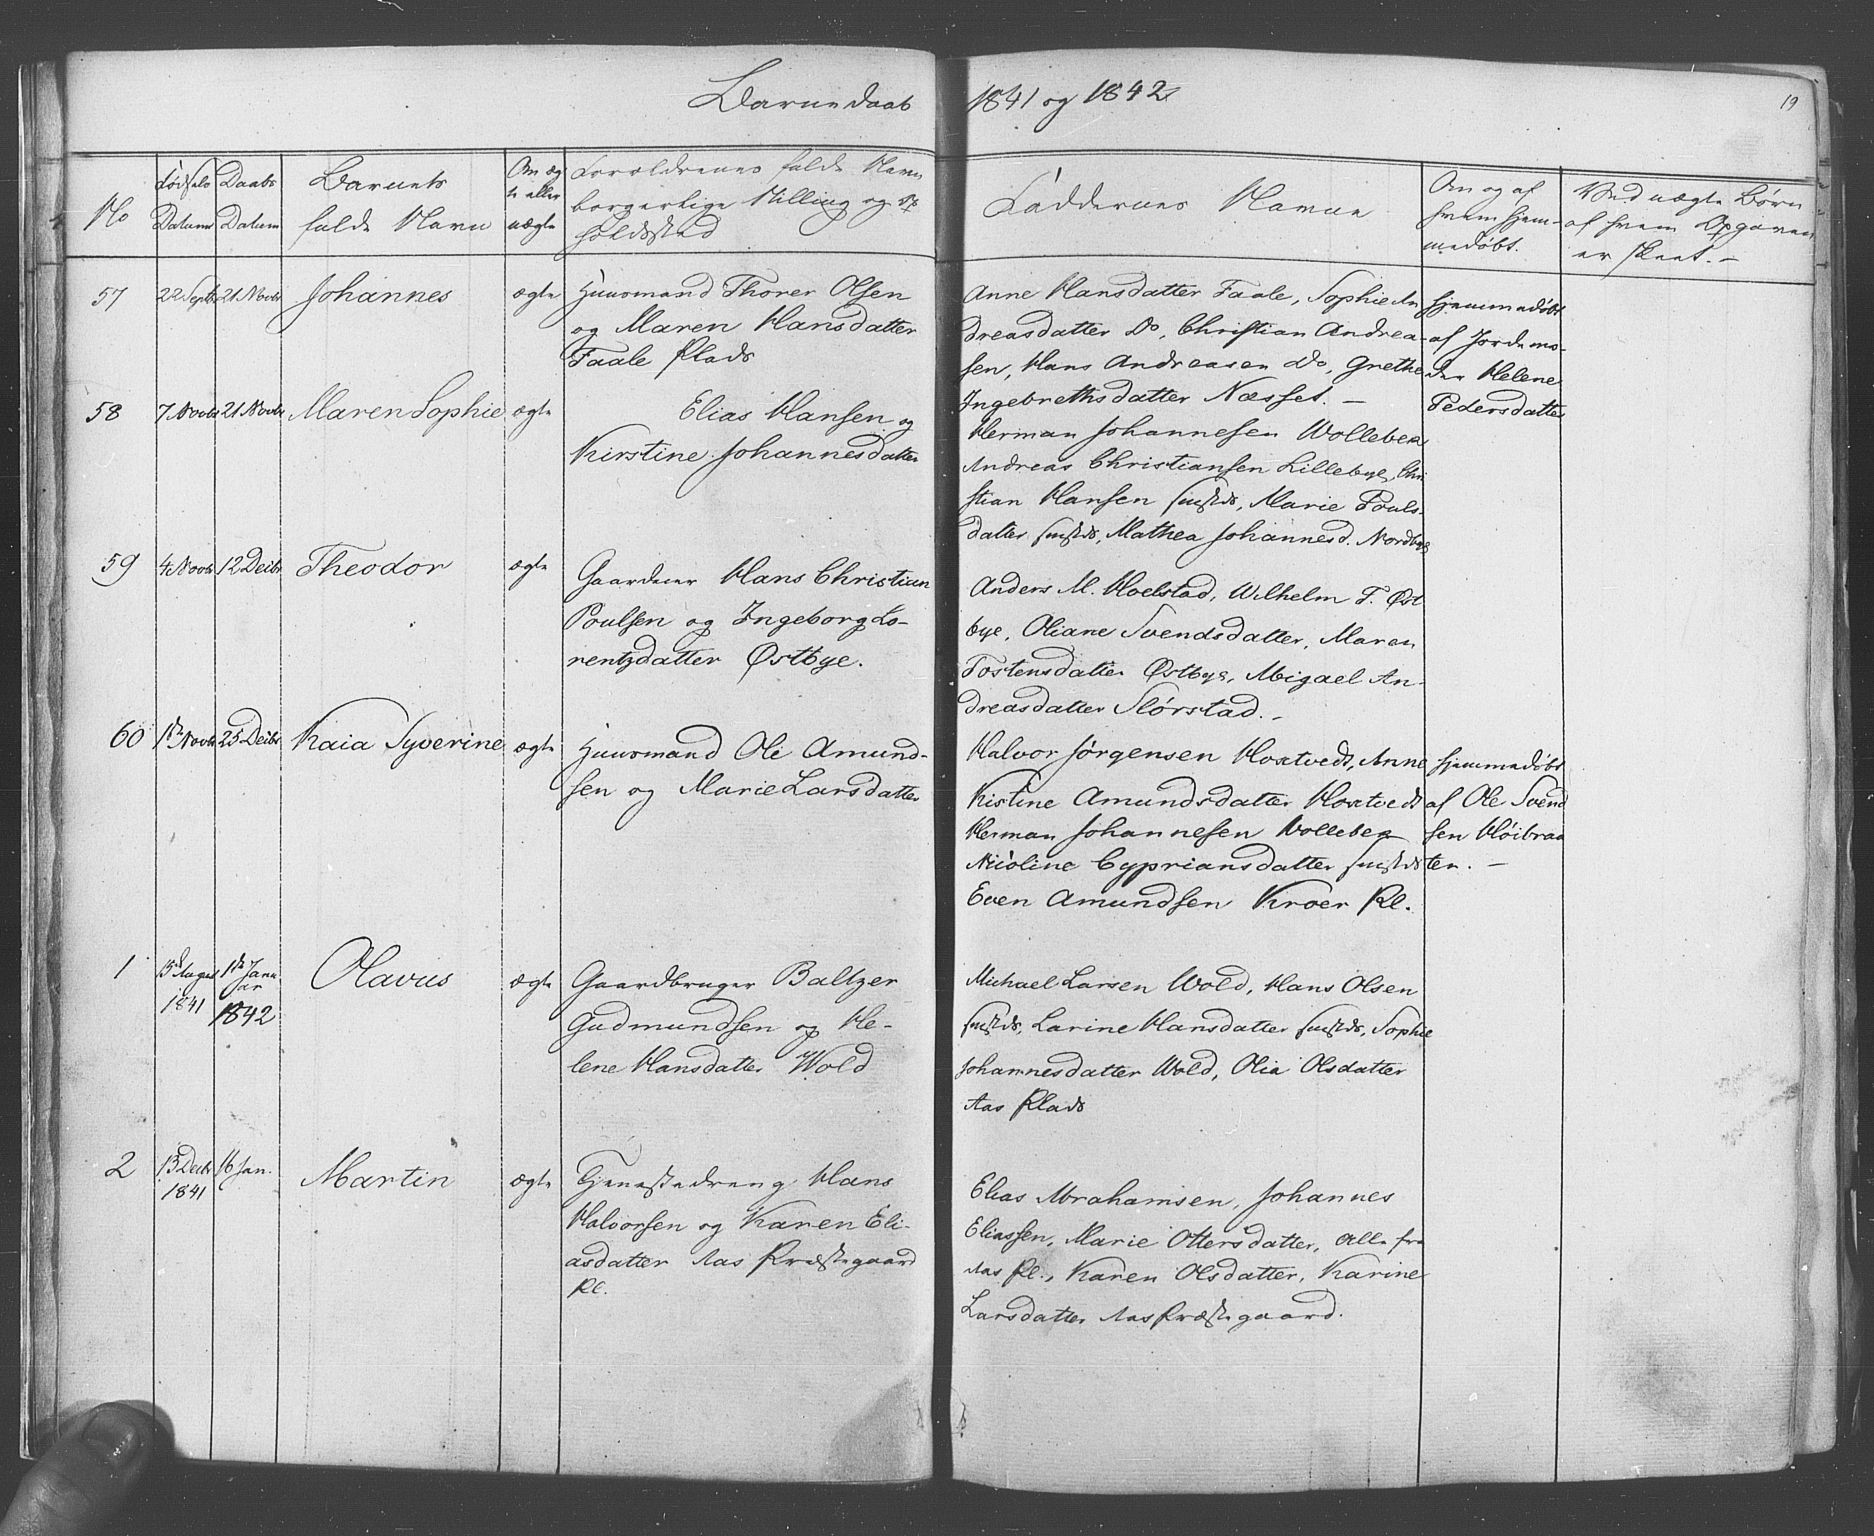 Barnedaab 1841 og 1842
19
No
Fødsels Datum
Daabs Datum
Barnets fulde Navn
Om ægte eller uægte
Forældrenes fulde Navn
borgerlige Stilling og Op
holdssted
Faddernes Navne
Om og af
hvem hjem-
medøbt.
Ved uægte Børn
af hvem Opgaven
er skeet. -
57 22 Septb 21 Novbr Johannes ægte
Huusmand Thorer Olsen
og Maren Hansdatter
Faale Plads
Anne Hansdatter Faale, Sophie An
dreasdatter Do, Christian Andrea-
sen, Hans Andreasen Do, Grethe
Ingebrethsdatter Næsset. -
hjemmedøbt
af Jordemo-
der Helene
Pedersdatter
58 7 Novbr 21 Novbr Maren Sophie ægte
Elias Hansen og
Kirstine Johannesdatter
Herman Johannesen Wollebek
Andreas Christiansen Lillebye, Chri
stian Hansen sammestds, Marie Pouls-
datter sammestds, Mathea Johannesd. Nordbye
59 4 Novbr 12 Decbr Theodor ægte
Gaardeier Hans Christian
Poulsen og Ingeborg Lo-
rentzdatter Østbye.
Anders M. Holstad, Wilhelm T. Øst
bye, Oliane Svendsdatter, Maren
Tostensdatter Østbye, Abigael An-
dreasdatter Slørstad. -
60 1ste Novbr 25 Decbr Kaia Syverine ægte
Huusmand Ole Amund-
sen og Marie Larsdatter
Halvor Jørgensen Hoxtvedt, Anne
Kistine Amundsdatter Hoxtvedt
Herman Johannesen Wollebek
Nicoline Cypriansdatter sammestds
Even Amundsen Kroer Pl.
hjemmedøbt
af Ole Svend
sen Høibraa
ten. -
1 15 August 1841 1ste Januar 1842 Olavus ægte
Gaardbruger Baltzer
Gudmundsen og He-
lene Hansdatter Wold
Michael Larsen Wold, Hans Olsen
sammestds, Larine Hansdatter sammestds, Sophie
Johannesdatter Wold, Olia Olsdatter
Aas Plads
2 13 Decbr 1841 16 Jan. Martin ægte
Tjenestedreng Hans
Halvorsen og Karen Eli-
asdatter Aas Præstegaard
Pl.
Elias Abrahamsen, Johannes
Eliassen, Marie Ottersdatter, alle fra
Aas Pl., Karen Olsdatter, Karine
Larsdatter Aas Præstegaard.